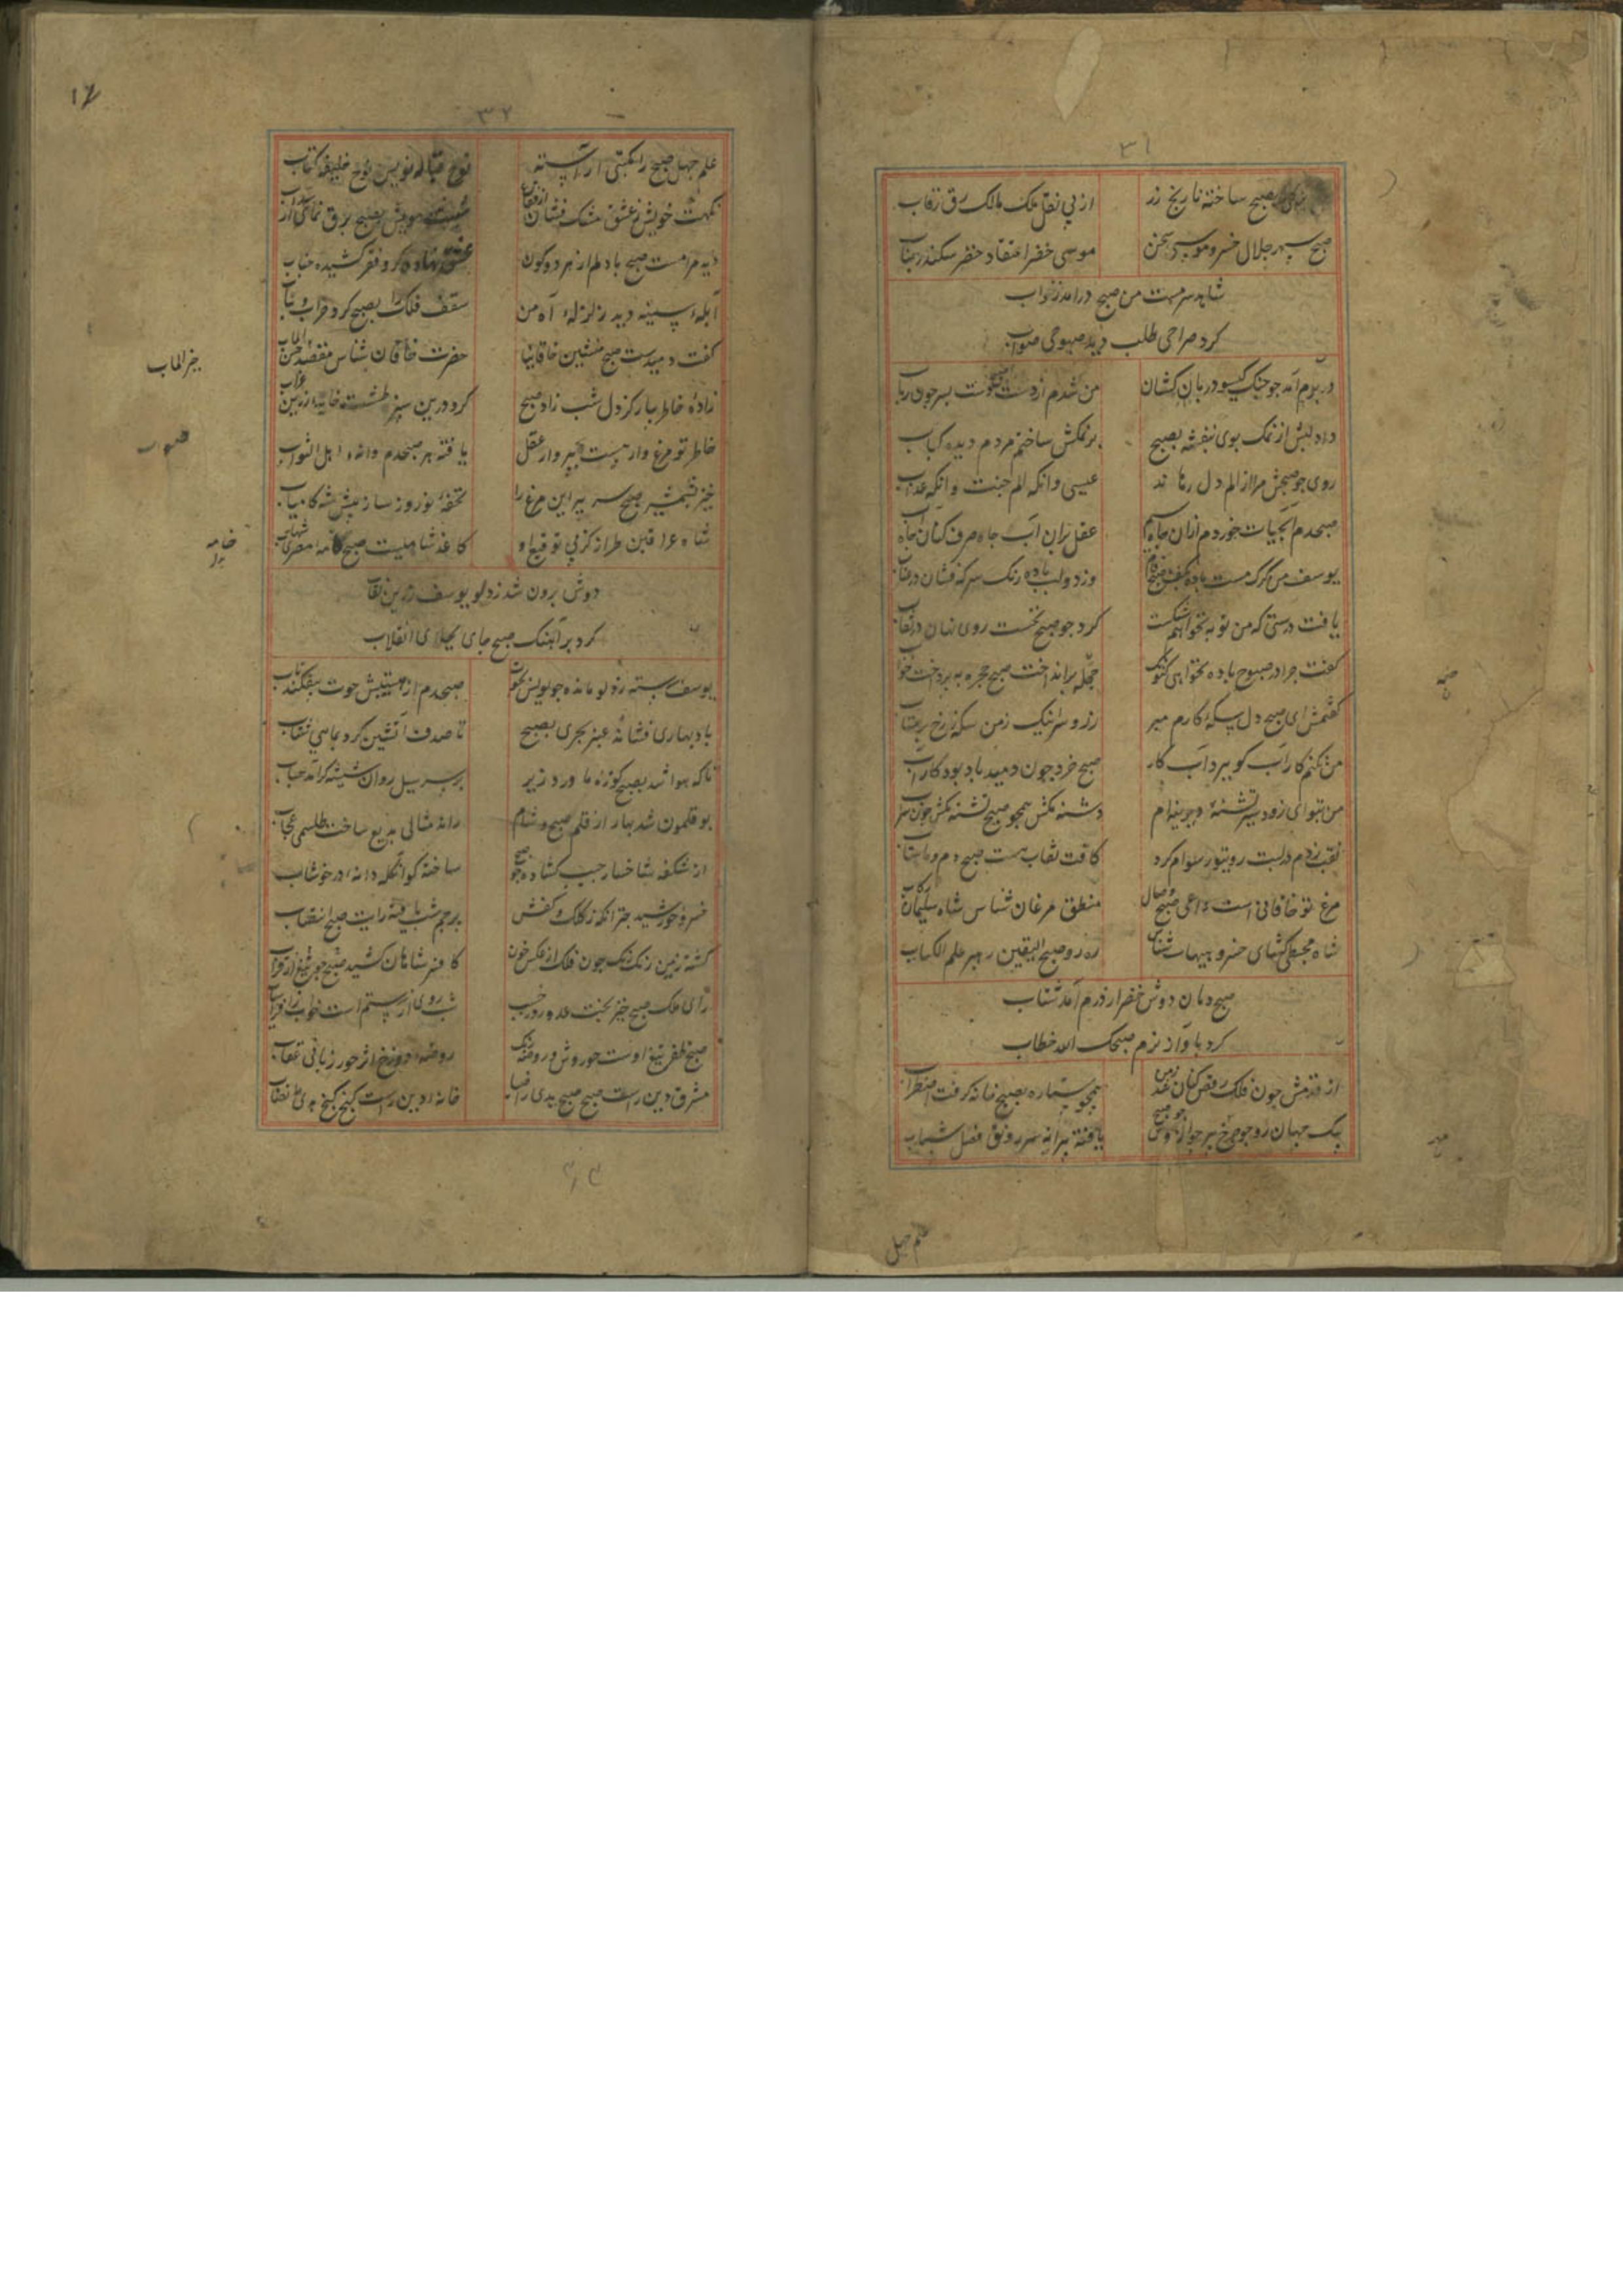 ۳۱
بصبح ساخته تاریخ زر از پی نقل ملک مالک رق رقاب
صبح سپهر جلال خسرو موسی سخن موسی خضر اعتقاد خضر سکندر جناب
شاهد سرمست من صبح درامد زخواب
کرد صراحی طلب دید صبوحی صواب
در برم آمد جو جنک کیسو در پا کشان من شدم از دست صبح دست بسر جون رباب
داد لبش از نمک بوی بنفشه بصبح بر نمکش ساختم مردم دیده کباب
روی جو صبحش مرا از الم دل رهاند عیسی وانکه الم جنت وانکه عذاب
صبحدم آبحیات خوردم ازان جاه سیم عقل بران آب جاه صرف کنان جاه
یوسف من کرک مست باده بکف صبح فام وز دو لب باده رنک سرکه فشان در عتاب
یافت درستی که من توبه نخواهم شکست کرد جو صبح نخست روی نهان در نقاب
کفت جرا در صبوح باده نخواهی کنون حجله برانداخت صبح حجره بپرداخت خواب
کفتمش ای صبح دل سکه کارم مبر زر و سر اینک زمن سکه رخ بر متاب
من نکنم کار آب کو ببرد آب کار صبح خرد جون دمید باد بود کار آب
من بتو ای زود سیر تشنه دیرینه ام دشنه مکش همچو صبح تشنه مکش جون سراب
نقب زدم در لبت روی تو رسوام کرد کافت نقاب هست صبح دم و ماهتاب
مرغ تو خاقانی است داعی صبح وصال منطق مرغان شناس شاه سلیمان رکاب
شاه مجسطی کشای خسرو هیهات شناس رهرو صبح الیقین رهبر علم الکتاب
صبح دمان دوش خضر از درم آمد شتاب
کرد باواز نرم صبحک الله خطاب
از قدمش جون فلک رقص کنان شد زمین همچو ستاره بصبح خانه کرفت اضطراب
یک جهان رو جو جرخ پیر جوانوش جو صبح یافته پیرانه سر رونق فصل شباب
علم جهل
۳۲
علم جهل صبح را مکتبی اراسته نوح خلیفه کتاب
نکهت خویش ز عشق مشک فشان از فقاع
دید مرا مست صبح با دلم از هر دو کون عشق نهاده کرو فقر کشیده جناب
آبله سینه دید زلزله آه من سقف فلک را بصبح کرد خراب و یباب
کفت دمیدست صبح منشین خاقانیا حضرت خاقان شناس مقصد حسن المآب
زاده خاطر بیار کز دل شب زاد صبح کرد درین سبز طشت خایه زرین عزاب
خاطر تو مرغ وار هست بپرواز عقل یافته هر صبحدم دانه اهل الثواب
خیز بشمشیر صبح سر ببر این مرغ را تحفه نوروز ساز پیش شه کامیاب
شاه عراقین طراز کز پی توقیع او کاغذ شامیست صبح خامه مصری شهاب
دوش برون شد ز دلو یوسف زرین نقاب
کرد بر آهنک صبح جای بجای انقلاب
یوسف رسته ز دلو مانده جو یونس بحوت صبحدم از هیبتش حوت بیفکند ناب
باد بهاری فشاند عنبر بحری بصبح تا صدف آتشین کرد بماهی شتاب
تا که هوا شد بصبح کوزه ماورد ریز بر سر سیل روان شیشه کر آمد حباب
بوقلمون شد بهار از قلم صبح و شام راند مثالی بدیع ساخت طلسمی عجاب
از شکفه شاخسار جیب کشاده جو صبح ساخته کوی انکله دانه در خوشاب
خسرو خورشید جتر انکه ز کلک و کفش برجم شب یافته رایت صبح انتصاب
کشته زمین رنک رنک جون فلک از عکس خون کافسر شاهان کشید صبح جو تیغ از قراب
رای ملک صبح خیز بخت عدو روز خسب شب روی از رستم است خواب ز افراسیاب
صبح ظفر تیغ اوست حوروش و روضه رنک روضه دوزخ اثر حور زبانی عقاب
مشرق دین راست صبح صبح هدی را ضیا خانه دین راست کنج کنج هدی را نصاب
خیر المآب
صواب
خامه